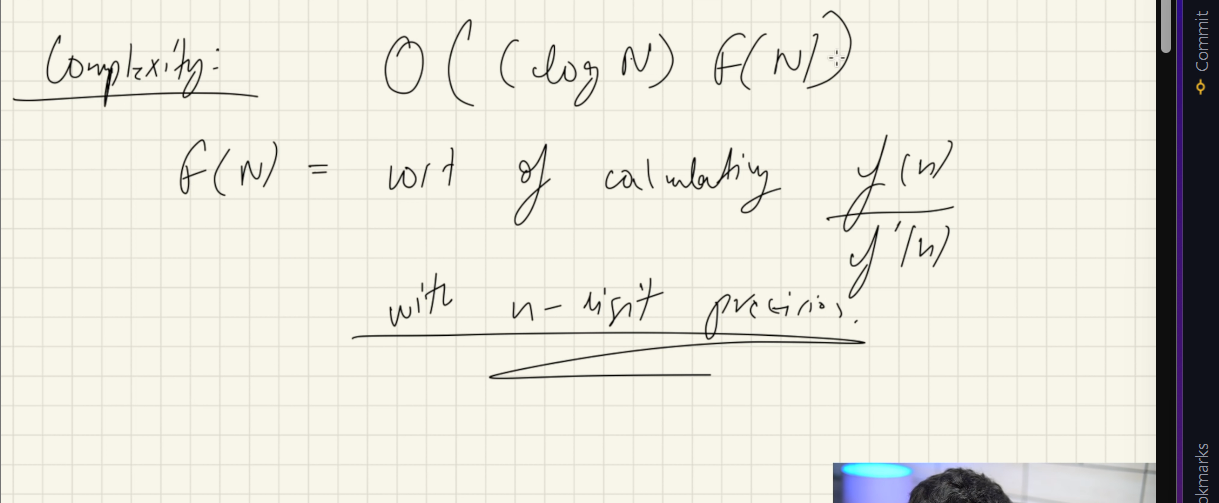 Complexity: O((log N) F(N))
F(N) = cost of calculating y(n)
y'(n)
with n-digit precision.
Commit
okmarks